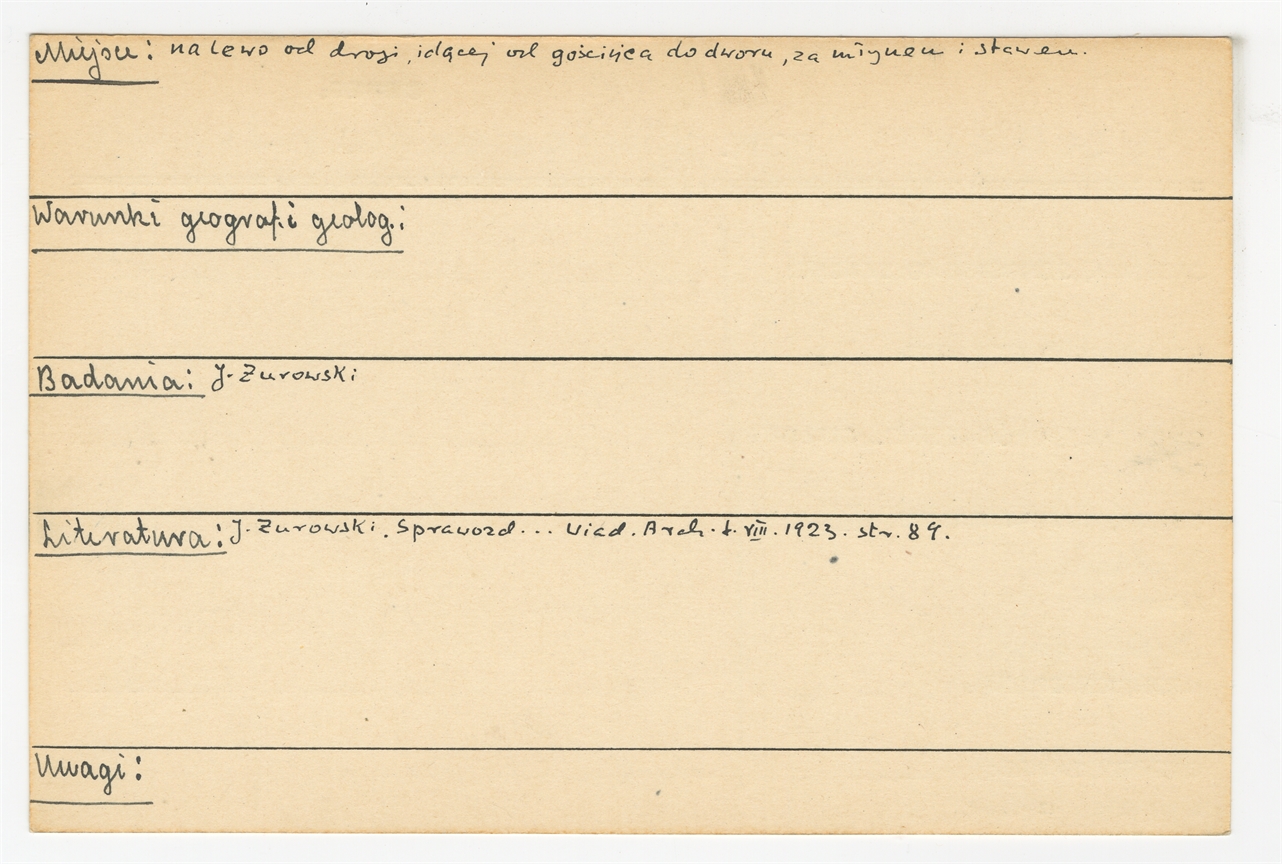 Miejsce: na lewo od drogi, idącej od gościńca do dworu, za młynem i stawem.
Warunki geograf. i geolog.:
Badania: J. Żurowski
Literatura: J. Żurowski. Sprawozd... Wiad. Arch. t. VIII. 1923. str. 89.
Uwagi: